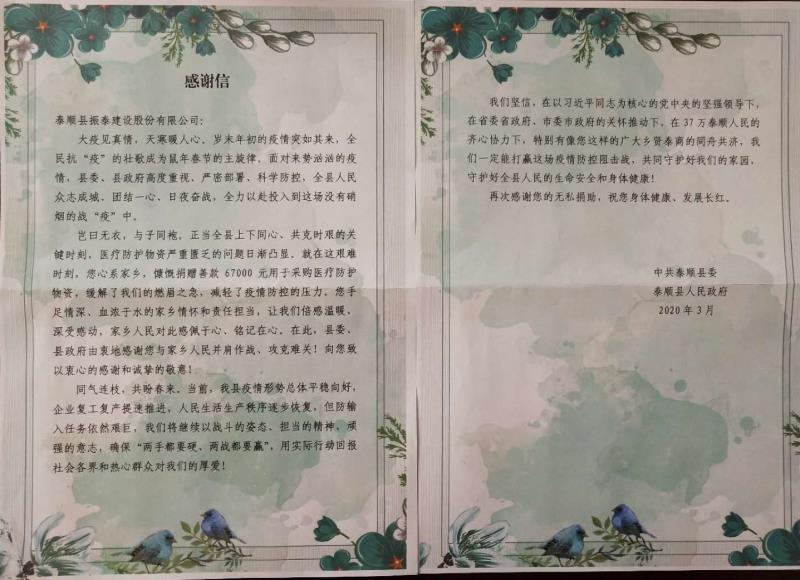 感谢信
泰顺县振泰建设股份有限公司：
大疫见真情，天寒暖人心。岁末年初的疫情突如其来，全
民抗“疫”的壮歌成为鼠年春节的主旋律。面对来势汹汹的疫
情，县委、县政府高度重视、严密部署、科学防控，全县人民
众志成城、团结一心、日夜奋战，全力以赴投入到这场没有硝
烟的战“疫”中。
岂曰无衣，与子同袍。正当全县上下同心、共克时艰的关
键时刻，医疗防护物资严重匮乏的问题日渐凸显。就在这艰难
时刻，您心系家乡，慷慨捐赠善款 67000 元用于采购医疗防护
物资，缓解了我们的燃眉之急，减轻了疫情防控的压力。您手
足情深、血浓于水的家乡情怀和责任担当，让我们倍感温暖、
深受感动，家乡人民对此感佩于心、铭记在心。在此，县委、
县政府由衷地感谢您与家乡人民并肩作战、攻克难关！向您致
以衷心的感谢和诚挚的敬意！
同气连枝，共盼春来。当前，我县疫情形势总体平稳向好，
企业复工复产提速推进，人民生活生产秩序逐步恢复，但防输
入任务依然艰巨，我们将继续以战斗的姿态、担当的精神、顽
强的意志，确保“两手都要硬、两战都要赢”，用实际行动回报
社会各界和热心群众对我们的厚爱！
我们坚信，在以习近平同志为核心的党中央的坚强领导下，
在省委省政府、市委市政府的关怀推动下，在 37 万泰顺人民的
齐心协力下，特别有像您这样的广大乡贤泰商的同舟共济，我
们一定能打赢这场疫情防控阻击战，共同守护好我们的家园，
守护好全县人民的生命安全和身体健康！
再次感谢您的无私捐助，祝您身体健康、发展长红。
中共泰顺县委
泰顺县人民政府
2020 年 3 月